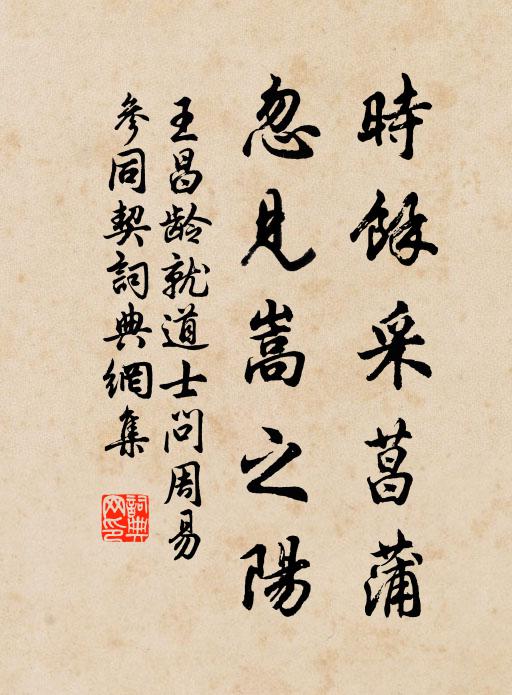 時餘采菖蒲
忽見嵩之陽
王昌龄就道士問周易
參同契詞典網集
詞典網印